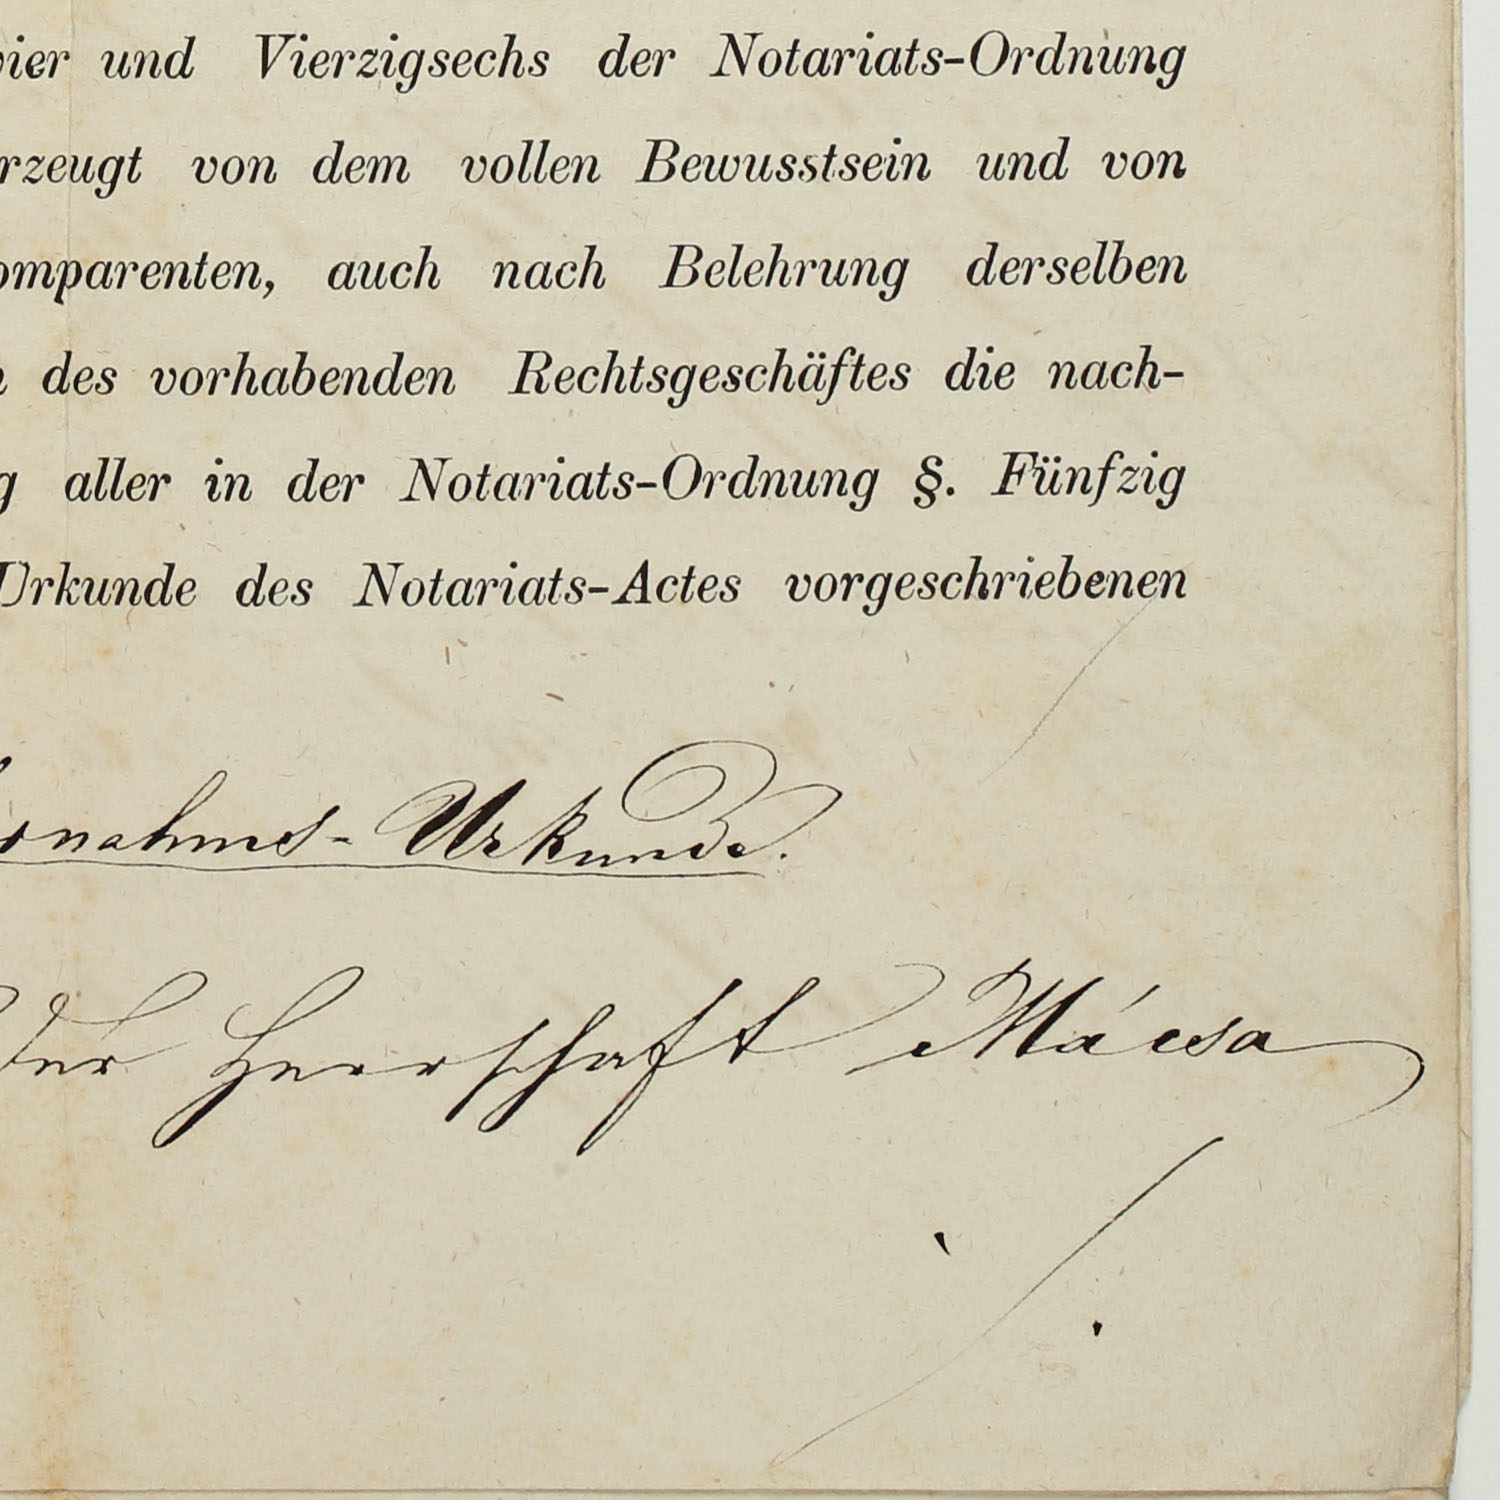 vier und Vierzigsechs der Notariats-Ordnung
rzeugt von dem vollen Bewusstsein und von
omparenten, auch nach Belehrung derselben
des vorhabenden Rechtsgeschäftes die nach-
g aller in der Notariats-Ordnung §. Fünfzig
Urkunde des Notariats-Actes vorgeschriebenen
nahms-Urkunde.
der Herrschaft Mácsa